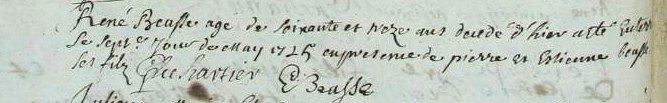 René Beasse age de soixante et treze ans decedé d'hier a eté Enterré
le septe. Jour de May 1725 en presence de pierre et Estienne beasse
ses filz Chartier E. Beasse
Julien